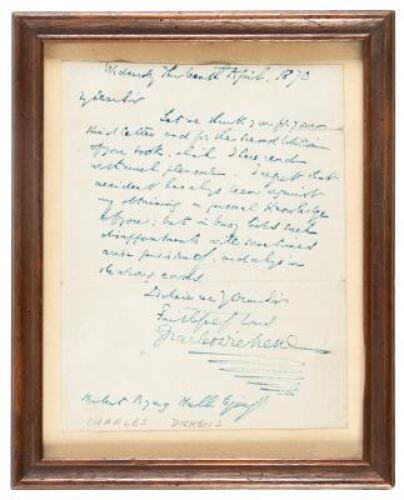 Wednesday Thirteenth April, 1870
My Dear Sir
Let me thank you for your
kind letter and for the second Edition
of your book, which I have read
with much pleasure. I regret that
accident has always been against
my obtaining a personal knowledge
of you; but in busy lives such
disappointments will sometimes
arise
the wrong
Believe me Dear Sir
Faithfully Yours
Charles Dickens
Herbert Byng Hall Esquire
CHARLES DICKENS